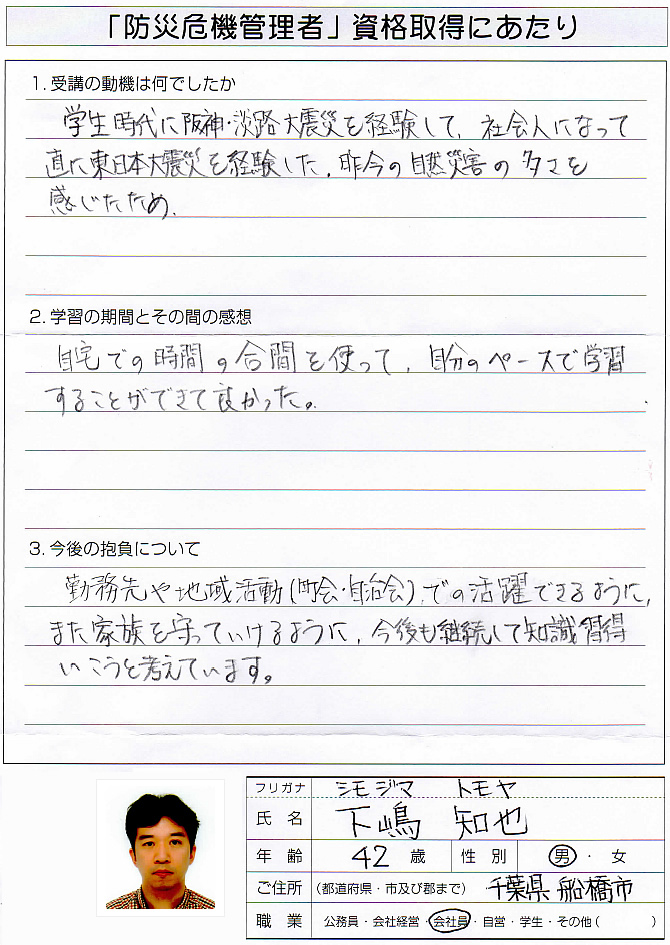 「防災危機管理者」資格取得にあたり
1. 受講の動機は何でしたか
学生時代に阪神・淡路大震災を経験して、社会人になって
直に東日本大震災を経験した。昨今の自然災害の多さを
感じたため。
2. 学習の期間とその間の感想
自宅での時間の合間を使って、自分のペースで学習
することができて良かった。
3. 今後の抱負について
勤務先や地域活動(町会・自治会)での活躍できるように、
また家族を守っていけるように、今後も継続して知識習得
いこうと考えています。
フリガナ シモジマ トモヤ
氏名 下嶋 知也
年齢 42 歳 性別 男・女
ご住所 (都道府県・市及び郡まで) 千葉県 船橋市
職業 公務員・会社経営・会社員・自営・学生・その他( )